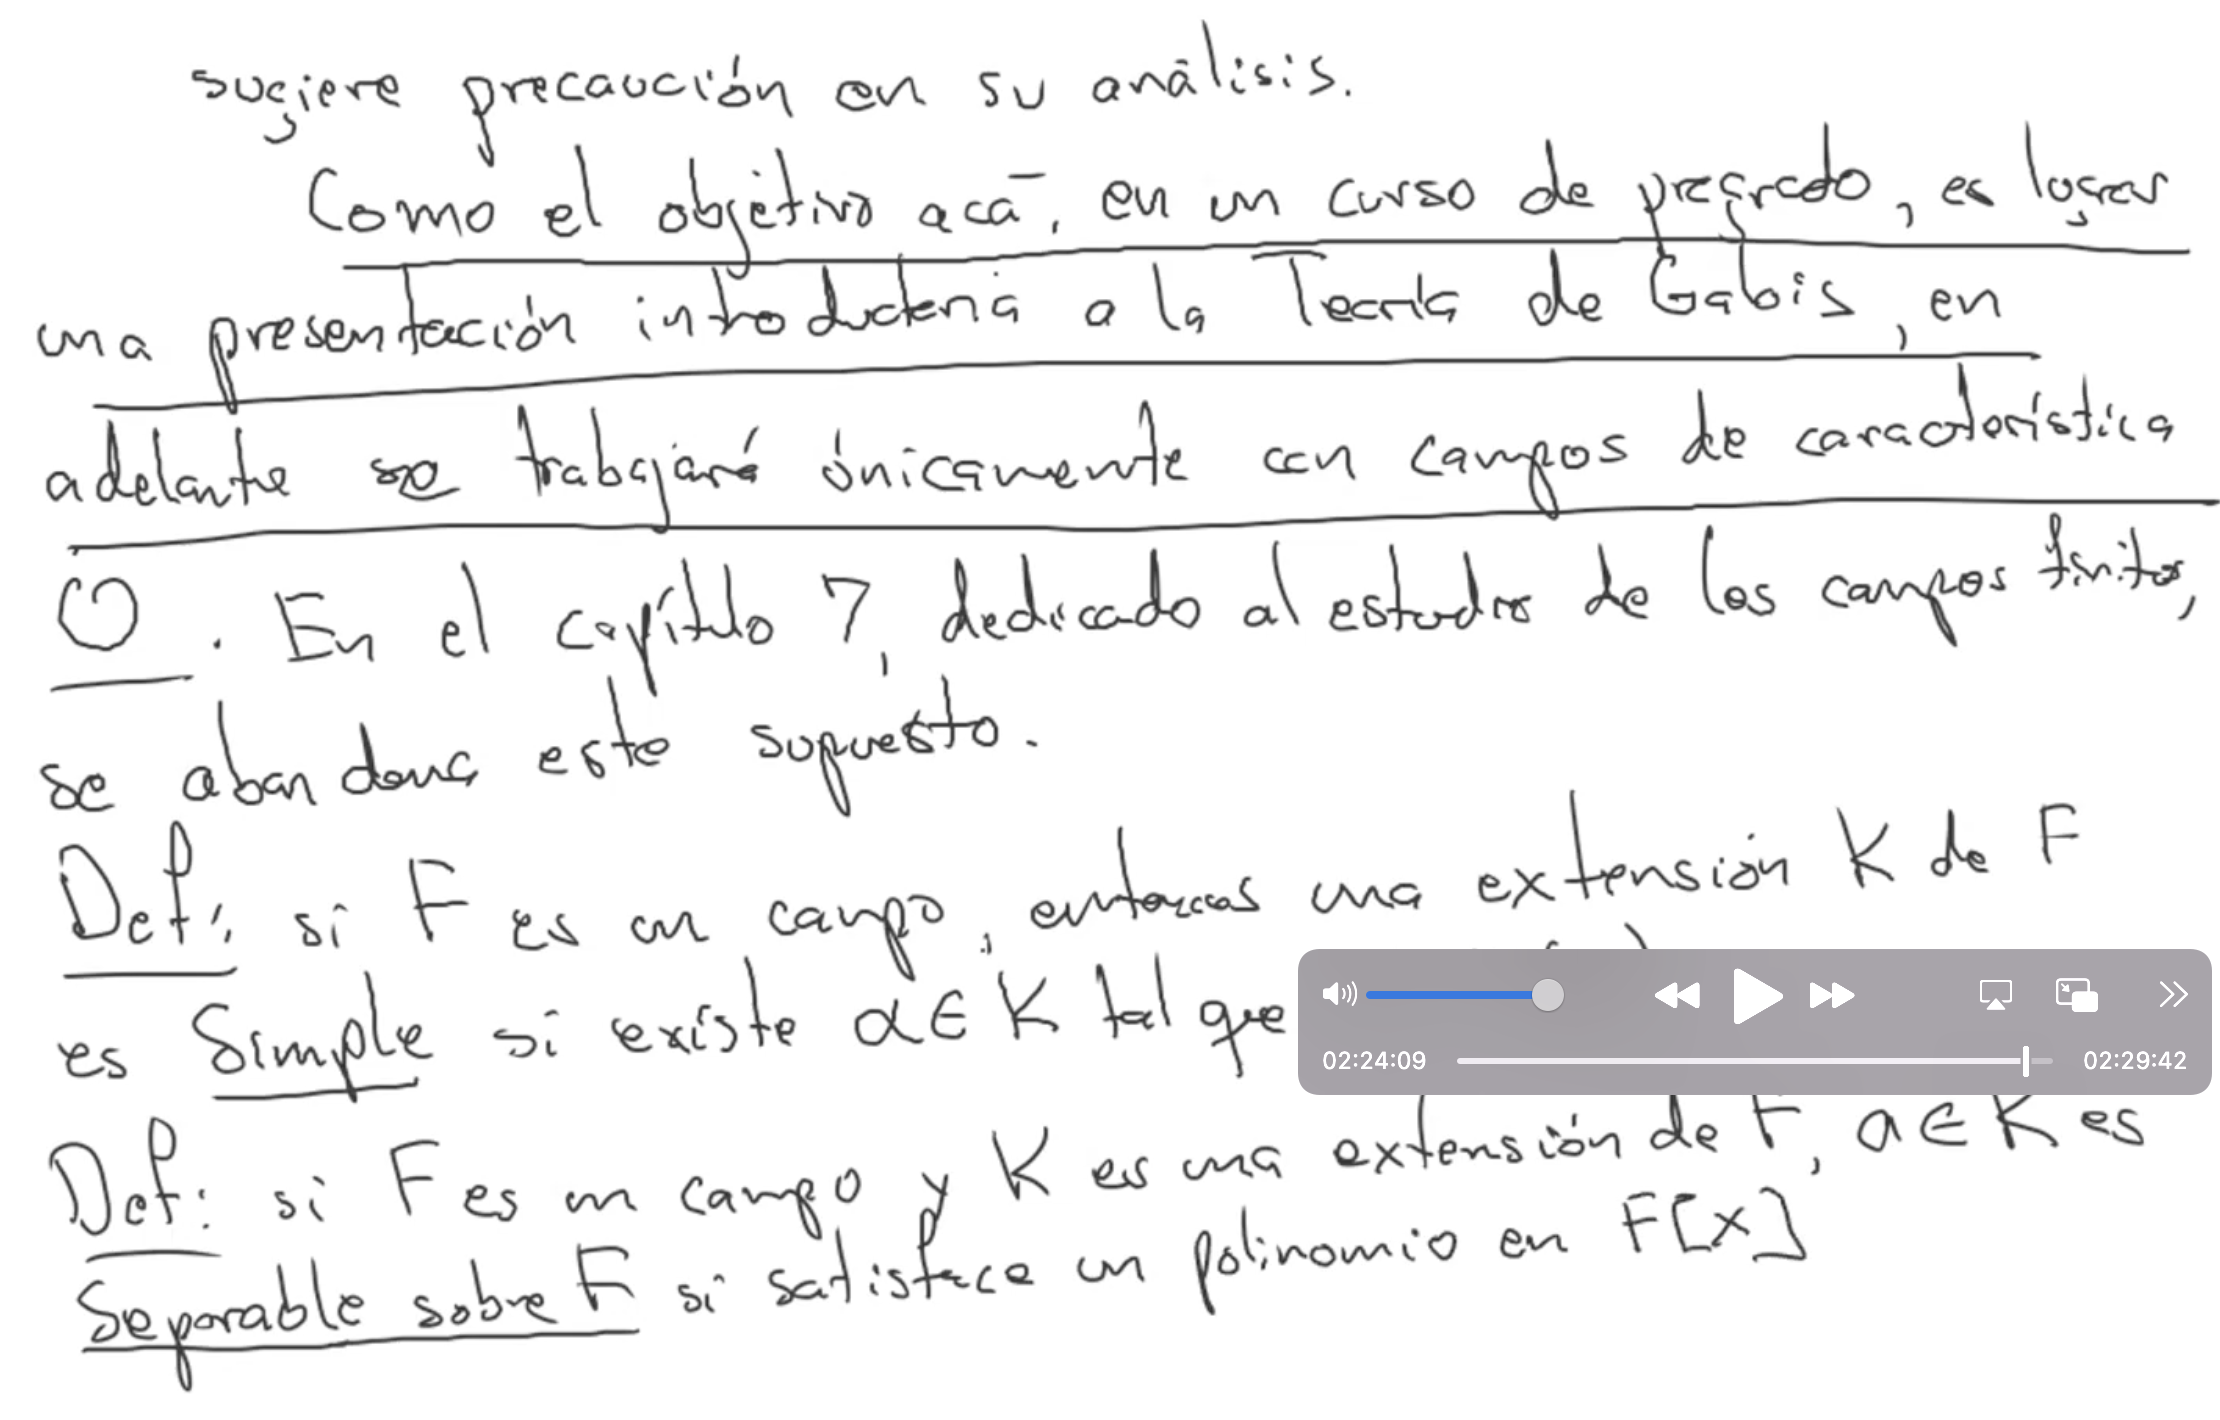 sugiere precaución en su análisis.
Como el objetivo acá, en un curso de pregrado, es lograr
una presentación introductoria a la Teoría de Galois, en
adelante se trabajará únicamente con campos de característica
0. En el capítulo 7, dedicado al estudio de los campos finitos,
se abandona este supuesto.
Def: si F es un campo, entonces una extensión K de F
es Simple si existe α ∈ K tal que
02:24:09 02:29:42
Def: si F es un campo y K es una extensión de F, a ∈ K es
Separable sobre F si satisface un polinomio en F[x]